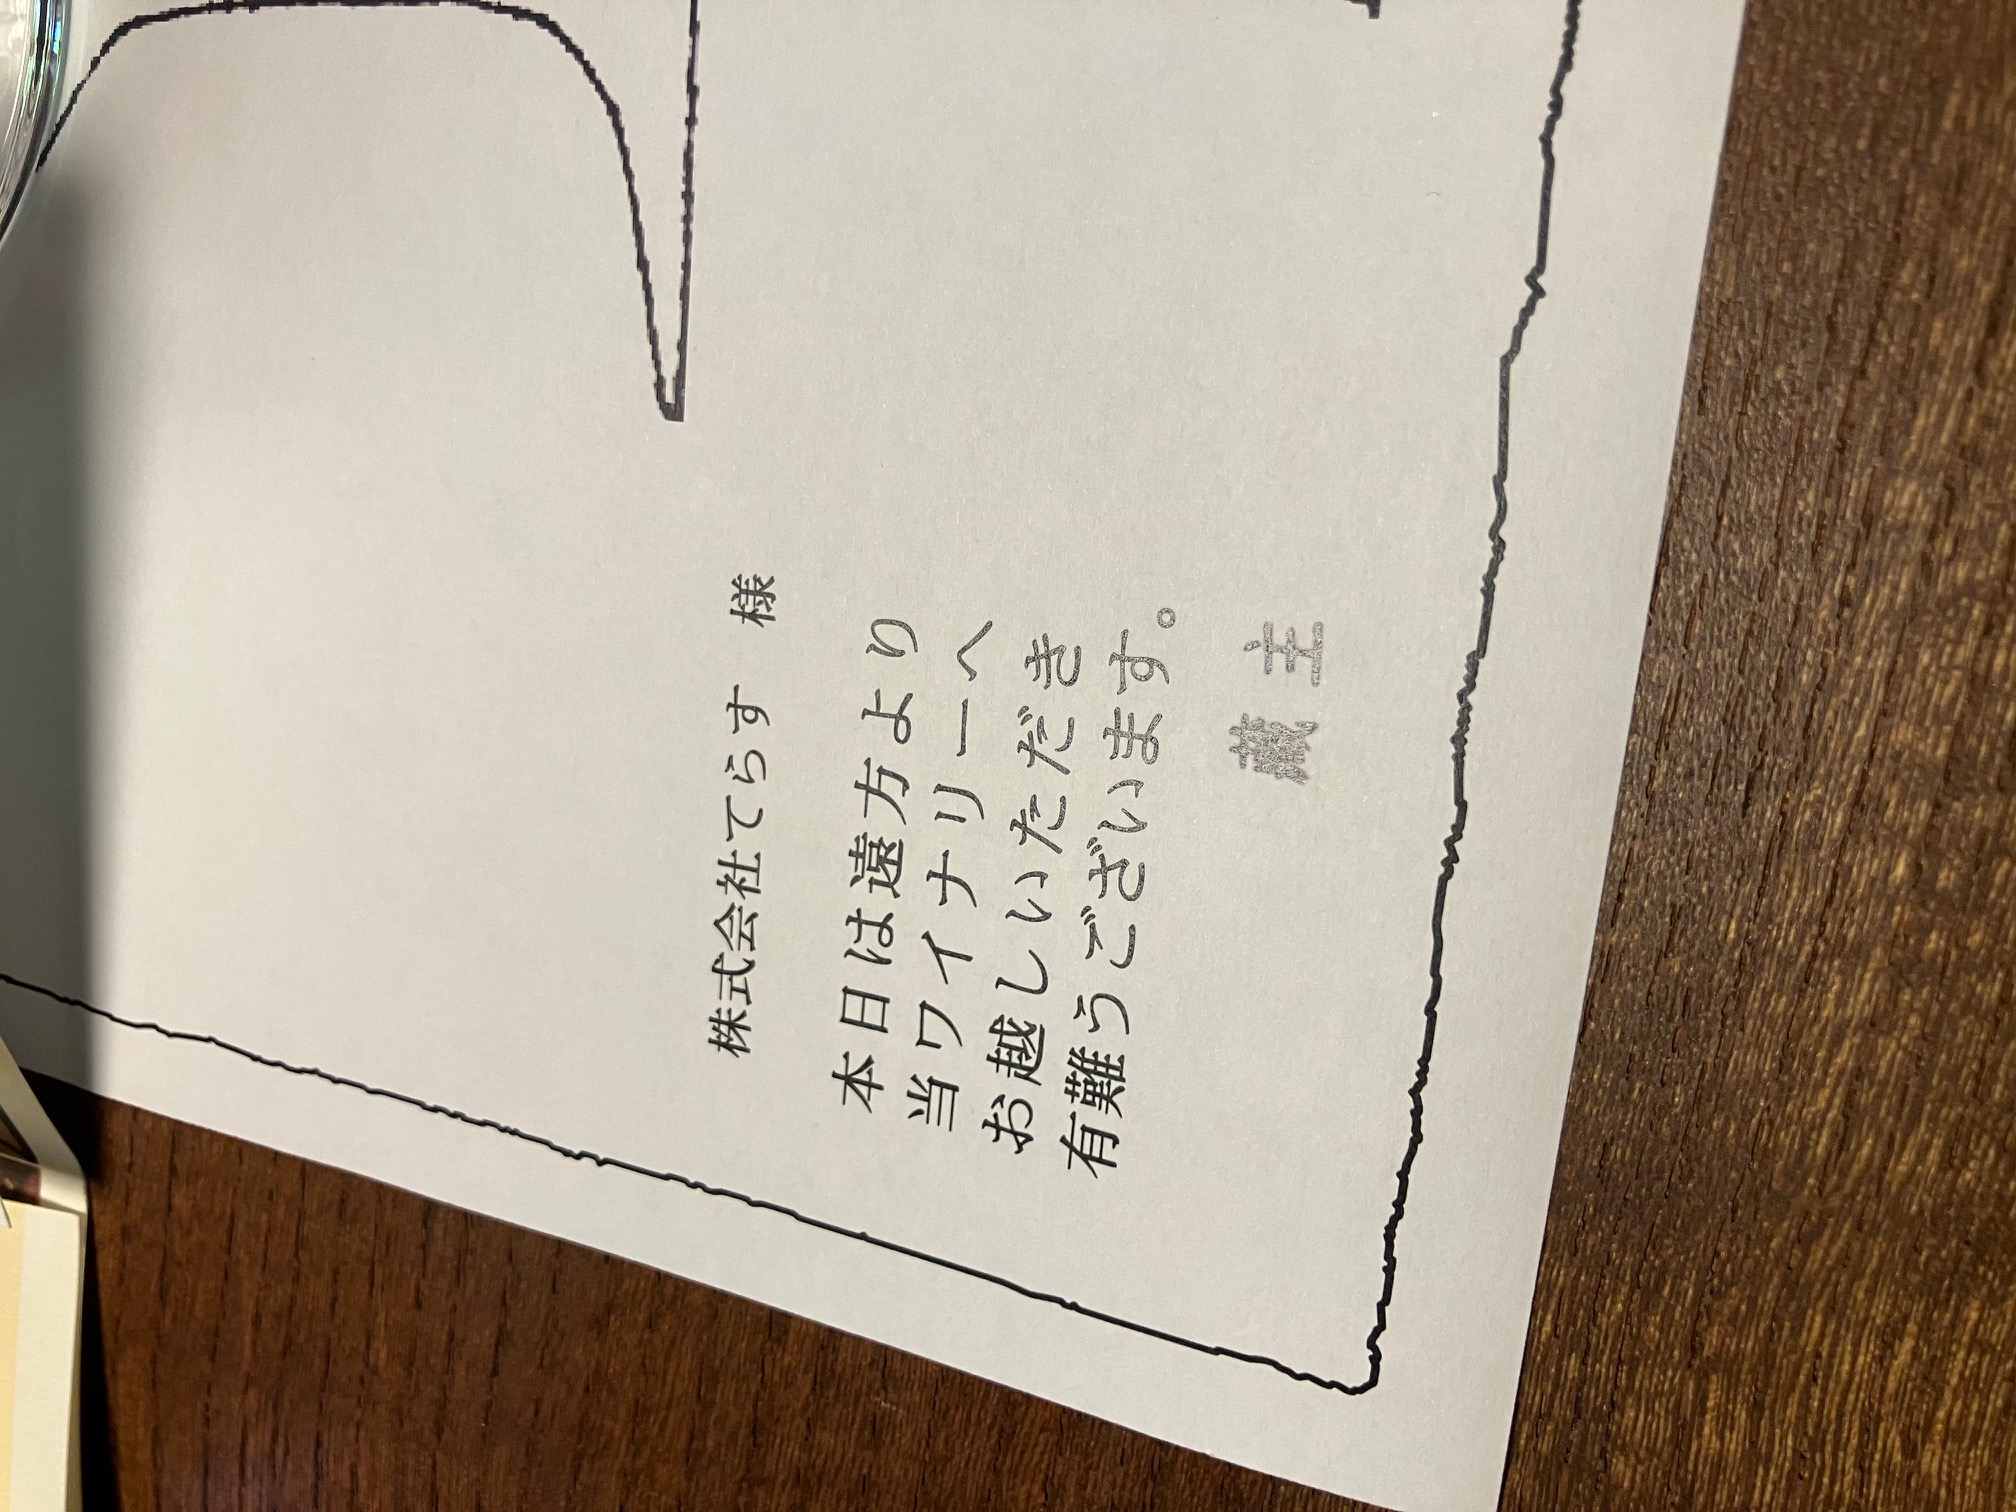 株式会社てらす 様
本日は遠方より
当ワイナリーへ
お越しいただき
有難うございます。
蔵 主